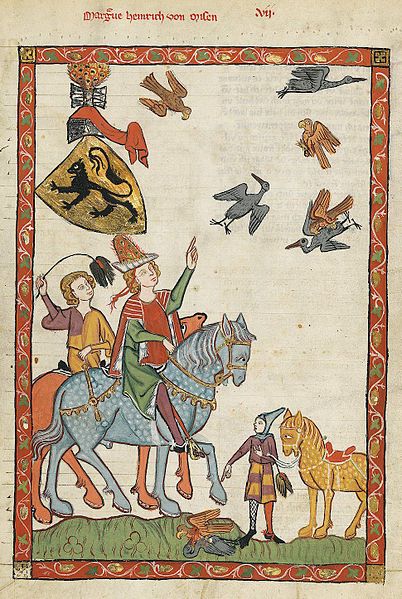 Margue heinrich von Misen VII.